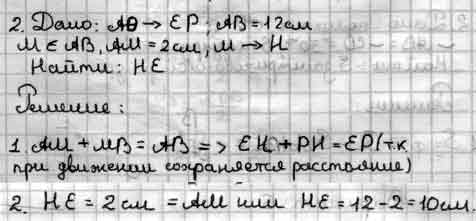 2. Дано: AB → EP; AB = 12 см
M ∈ AB, AM = 2 см, M → H
Найти: HE
Решение:
1. AM + MB = AB => EH + PH = EP (т.к
при движении сохраняется расстояние)
2. HE = 2 см = AM или HE = 12 - 2 = 10 см